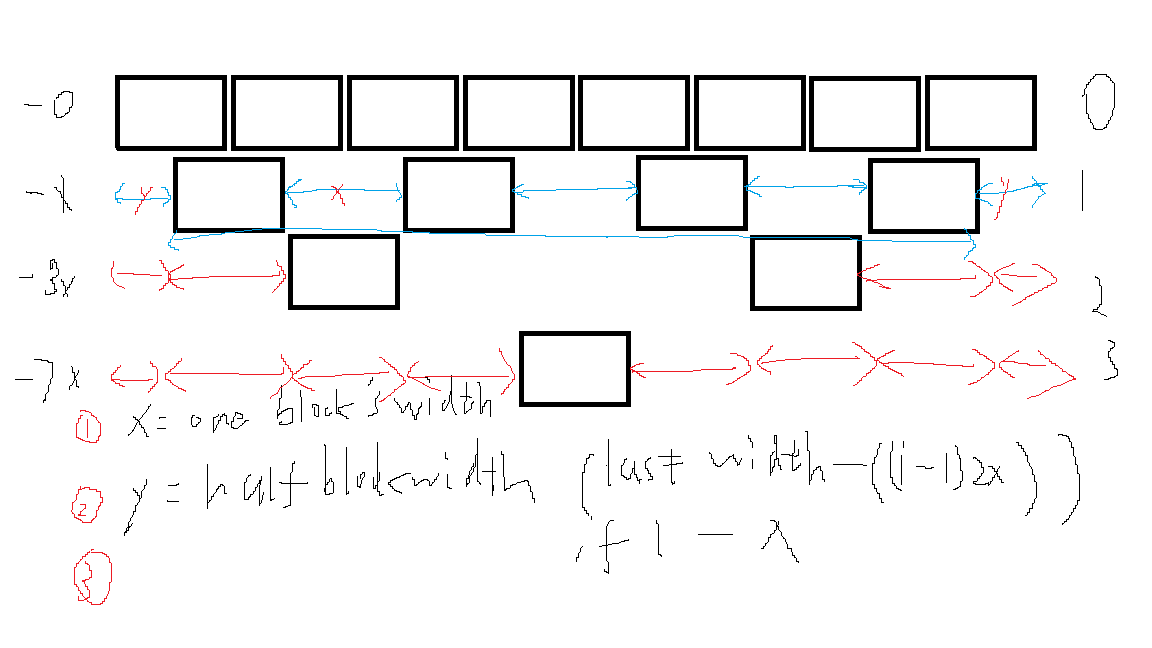 -0 0
-x y x y 1
-3x 2
-7x 3
① x = one block's width
② y = half blockwidth (last width-((i-1)2x))
if 1 - x
③